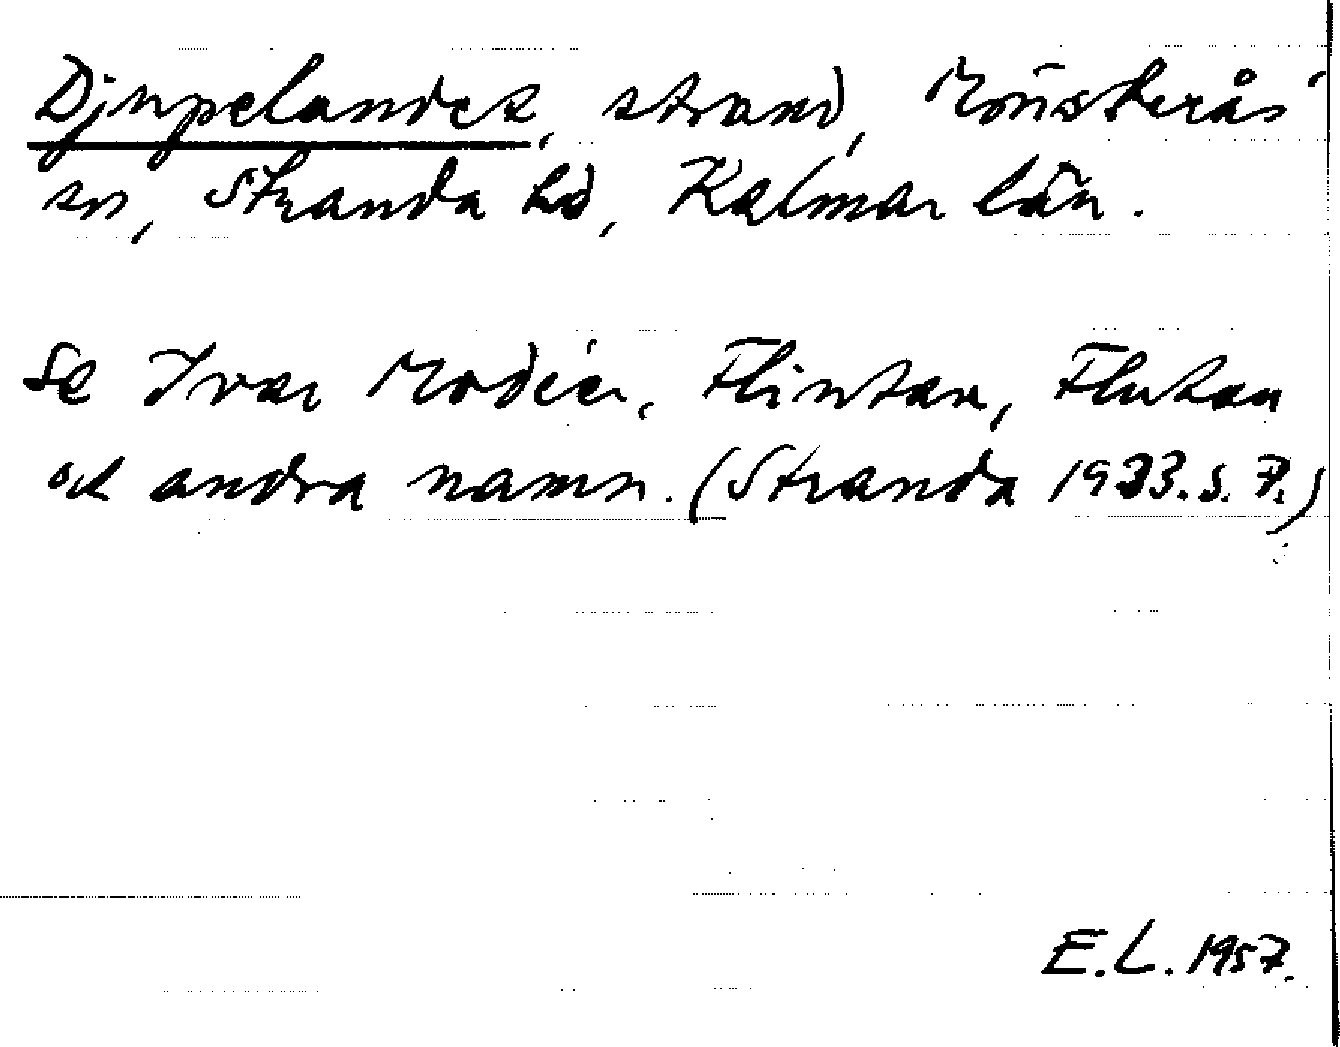 Djupelandet, strand, Mönsterås
sn, Stranda hd, Kalmar län.
Se Ivar Modéer, Flintan, Flutan
och andra namn. (Stranda 1933. s. 7.)
E.L. 1957.